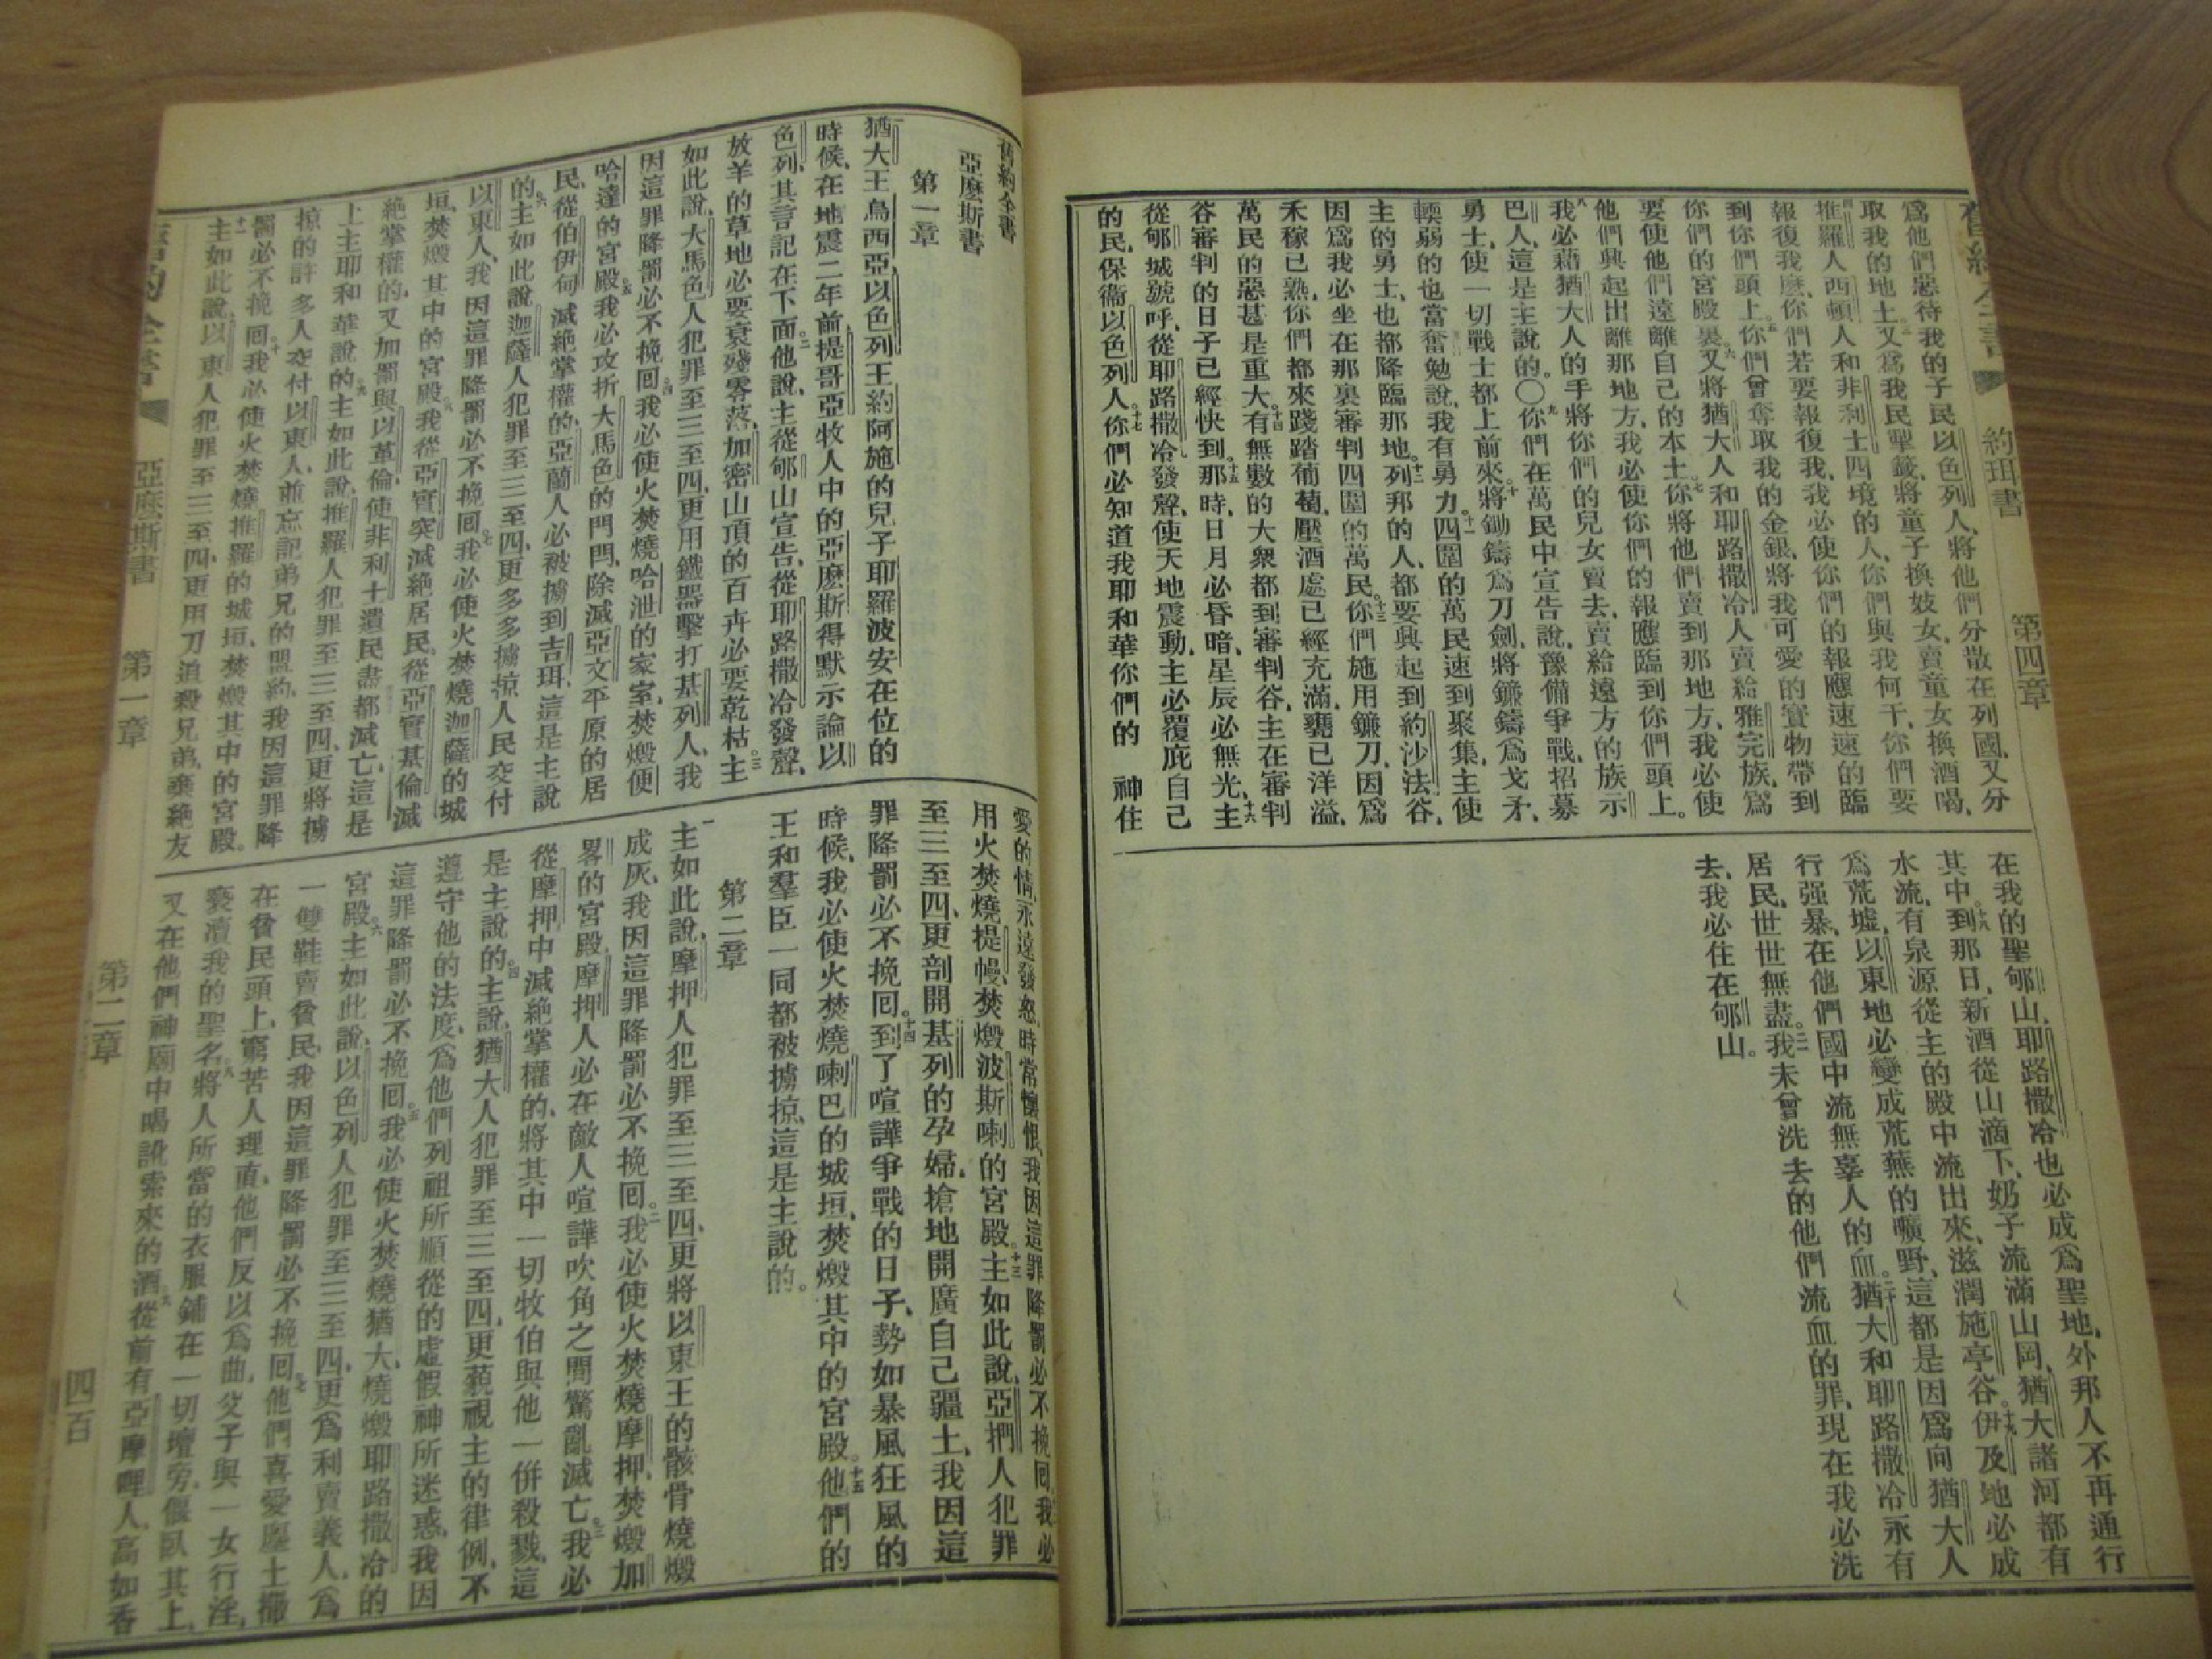 舊約全書 約珥書 第四章
爲他們惡待我的子民以色列人、將他們分散在列國、又分
取我的地土、三又爲我民拏鬮、將童子換妓女、賣童女換酒喝、
四推羅人西頓人和非利士四境的人、你們與我何干、你們要
報復我麽、你們若要報復我、我必使你們的報應速速的臨
到你們頭上。五你們曾奪取我的金銀、將我可愛的寶物帶到
你們的宮殿裏。六又將猶大人和耶路撒冷人賣給雅完族、爲
要使他們遠離自己的本土。七你將他們賣到那地方、我必使
他們興起出離那地方、我必使你們的報應臨到你們頭上。
八我必藉猶大人的手將你們的兒女賣去、賣給遠方的族示
巴人、這是主說的。〇九你們在萬民中宣告說、豫備爭戰、招募
勇士、使一切戰士都上前來。十將鋤鑄爲刀劍、將鐮鑄爲戈矛、
輭弱的也當奮勉說、我有勇力。十一四圍的萬民速到聚集、主使
主的勇士、也都降臨那地。十二列邦的人、都要興起到約沙法谷、
因爲我必坐在那裏審判四圍的萬民。十三你們施用鐮刀、因爲
禾稼已熟、你們都來踐踏葡萄、壓酒處已經充滿、甕已洋溢、
萬民的惡甚是重大。十四有無數的大衆都到審判谷、主在審判
谷審判的日子已經快到。十五那時、日月必昏暗、星辰必無光、十六主
從郇城號呼、從耶路撒冷發聲、使天地震動、主必覆庇自己
的民、保衞以色列人。十七你們必知道我耶和華你們的 神住
在我的聖郇山、耶路撒冷也必成爲聖地、外邦人不再通行
其中。十八到那日、新酒從山滴下、奶子流滿山岡、猶大諸河都有
水流、有泉源從主的殿中流出來、滋潤施亭谷。十九伊及地必成
爲荒墟、以東地必變成荒蕪的曠野、這都是因爲向猶大人
行强暴、在他們國中流無辜人的血。二十猶大和耶路撒冷永有
居民、世世無盡。二一我未曾洗去的他們流血的罪、現在我必洗
去、我必住在郇山。
舊約全書
亞麽斯書
第一章
一猶大王烏西亞以色列王約阿施的兒子耶羅波安在位的
時候、在地震二年前、提哥亞牧人中的亞麽斯得默示論以
色列、其言記在下面。二他說、主從郇山宣告、從耶路撒冷發聲、
放羊的草地必要衰殘零落、加密山頂的百卉必要乾枯。三主
如此說、大馬色人犯罪至三至四、更用鐵器擊打基列人、我
因這罪降罰必不挽回。四我必使火焚燒哈泄的家室、焚燬便
哈達的宮殿。五我必攻折大馬色的門閂、除滅亞文平原的居
民、從伯伊甸滅絕掌權的、亞蘭人必被擄到吉珥、這是主說
的。六主如此說、迦薩人犯罪至三至四、更多多擄掠人民交付
以東人、我因這罪降罰必不挽回。七我必使火焚燒迦薩的城
垣、焚燬其中的宮殿。八我從亞實突滅絕居民、從亞實基倫滅
絕掌權的、又加罰與以革倫、使非利士遺民盡都滅亡、這是
上主耶和華說的。九主如此說、推羅人犯罪至三至四、更將擄
掠的許多人交付以東人、並忘記弟兄的盟約、我因這罪降
罰必不挽回。十我必使火焚燒推羅的城垣、焚燬其中的宮殿。
十一主如此說、以東人犯罪至三至四、更用刀追殺兄弟、棄絕友
愛的情、永遠發怒、時常懷恨、我因這罪降罰必不挽回。我必
用火焚燒提幔、焚燬波斯喇的宮殿。十三主如此說、亞捫人犯罪
至三至四、更剖開基列的孕婦、搶地開廣自己疆土、我因這
罪降罰必不挽回。十四到了喧譁爭戰的日子、勢如暴風狂風的
時候、我必使火焚燒喇巴的城垣、焚燬其中的宮殿。十五他們的
王和羣臣一同都被擄掠、這是主說的。
第二章
一主如此說、摩押人犯罪至三至四、更將以東王的骸骨燒燬
成灰、我因這罪降罰必不挽回。二我必使火焚燒摩押、焚燬加
畧的宮殿、摩押人必在敵人喧譁吹角之間驚亂滅亡。三我必
從摩押中滅絕掌權的、將其中一切牧伯與他一併殺戮、這
是主說的。四主說、猶大人犯罪至三至四、更藐視主的律例、不
遵守他的法度、爲他們列祖所順從的虛假神所迷惑、我因
這罪降罰必不挽回。五我必使火焚燒猶大、燒燬耶路撒冷的
宮殿。六主如此說、以色列人犯罪至三至四、更爲利賣義人、爲
一雙鞋賣貧民、我因這罪降罰必不挽回。七他們喜愛塵土撒
在貧民頭上、窮苦人理直、他們反以爲曲、父子與一女行淫、
褻瀆我的聖名。八將人所當的衣服鋪在一切壇旁、偃臥其上、
又在他們神廟中喝訛索來的酒。九從前有亞摩哩人、高如香
舊約全書 亞麽斯書 第一章 第二章 四百